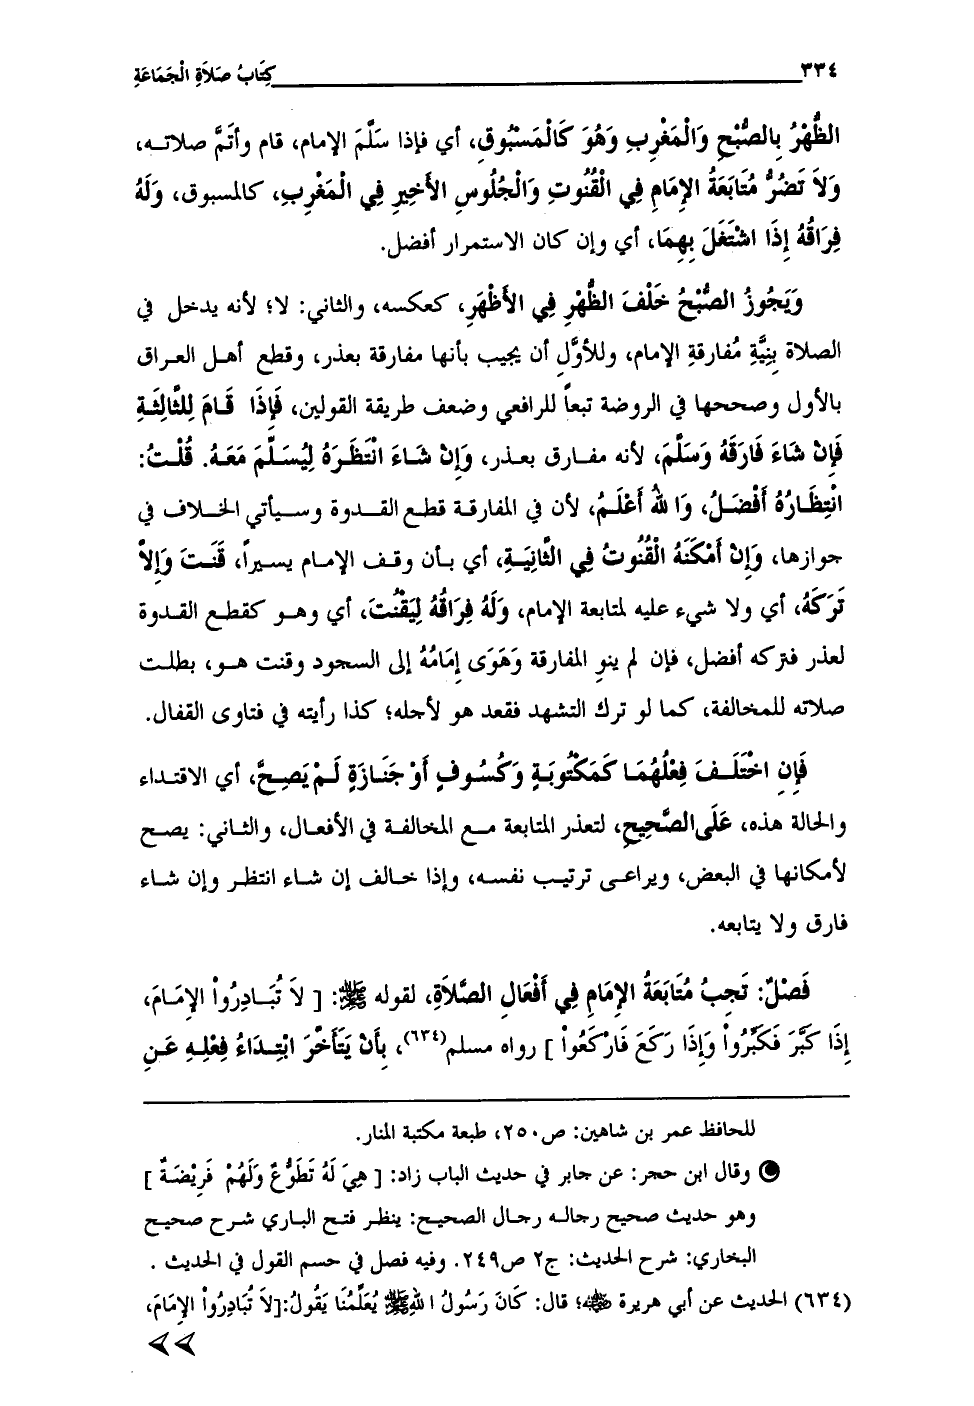 ٣٣٤ كِتَابُ صَلاَةِ الْجَمَاعَةِ
الظُّهْرُ بِالصُّبْحِ وَالْمَغْرِبِ وَهُوَ كَالْمَسْبُوقِ، أي فإذا سَلَّمَ الإمام، قام وأتَمَّ صلاته،
وَلاَ تَضُرُّ مُتَابَعَةُ الإِمَامِ فِي الْقُنُوتِ وَالْجُلُوسِ الأَخِيرِ فِي الْمَغْرِبِ، كالمسبوق، وَلَهُ
فِرَاقُهُ إِذَا اشْتَغَلَ بِهِمَا، أي وإن كان الاستمرار أفضل.
وَيَجُوزُ الصُّبْحُ خَلْفَ الظُّهْرِ فِي الأَظْهَرِ، كعكسه، والثاني: لا؛ لأنه يدخل في
الصلاة بِنِيَّةِ مُفارقةِ الإمام، وللأوَّلِ أن يجيب بأنها مفارقة بعذر، وقطع أهل العراق
بالأول وصححها في الروضة تبعاً للرافعي وضعف طريقة القولين، فَإِذَا قَامَ لِلثَّالِثَةِ
فَإِنْ شَاءَ فَارَقَهُ وَسَلَّمَ، لأنه مفارق بعذر، وَإِنْ شَاءَ انْتَظَرَهُ لِيُسَلِّمَ مَعَهُ. قُلْتُ:
انْتِظَارُهُ أَفْضَلُ، وَا للهُ أَعْلَمُ، لأن في المفارقة قطع القدوة وسيأتي الخلاف في
جوازها، وَإِنْ أَمْكَنَهُ الْقُنُوتُ فِي الثَّانِيَةِ، أي بأن وقف الإمام يسيراً، قَنَتَ وَإِلاَّ
تَرَكَهُ، أي ولا شيء عليه لمتابعة الإمام، وَلَهُ فِرَاقُهُ لِيَقْنُتَ، أي وهو كقطع القدوة
لعذر فتركه أفضل، فإن لم ينوِ المفارقة وَهَوَى إِمَامُهُ إلى السجود وقنت هو، بطلت
صلاته للمخالفة، كما لو ترك التشهد فقعد هو لأجله؛ كذا رأيته في فتاوى القفال.
فَإِنِ اخْتَلَفَ فِعْلُهُمَا كَمَكْتُوبَةٍ وَكُسُوفٍ أَوْ جَنَازَةٍ لَمْ يَصِحَّ، أي الاقتداء
والحالة هذه، عَلَى الصَّحِيحِ، لتعذر المتابعة مع المخالفة في الأفعال، والثاني: يصح
لأمكانها في البعض، ويراعى ترتيب نفسه، وإذا خالف إن شاء انتظر وإن شاء
فارق ولا يتابعه.
فَصْلٌ: تَجِبُ مُتَابَعَةُ الإِمَامِ فِي أَفْعَالِ الصَّلاَةِ، لقوله ﷺ: [ لاَ تُبَادِرُواْ الإِمَامَ،
إِذَا كَبَّرَ فَكَبِّرُواْ وَإِذَا رَكَعَ فَارْكَعُواْ ] رواه مسلم(٦٣٤)، بِأَنْ يَتَأَخَّرَ ابْتِدَاءُ فِعْلِهِ عَنِ
للحافظ عمر بن شاهين: ص٢٥٠، طبعة مكتبة المنار.
وقال ابن حجر: عن جابر في حديث الباب زاد: [ هِيَ لَهُ تَطَوُّعٌ وَلَهُمْ فَرِيْضَةٌ ]
وهو حديث صحيح رجاله رجال الصحيح: ينظر فتح الباري شرح صحيح
البخاري: شرح الحديث: ج٢ ص٢٤٩. وفيه فصل في حسم القول في الحديث .
(٦٣٤) الحديث عن أبي هريرة ﷺ؛ قال: كَانَ رَسُولُ ا للهِ ﷺ يُعَلِّمُنَا يَقُولُ:[لاَ تُبَادِرُواْ الإِمَامَ،